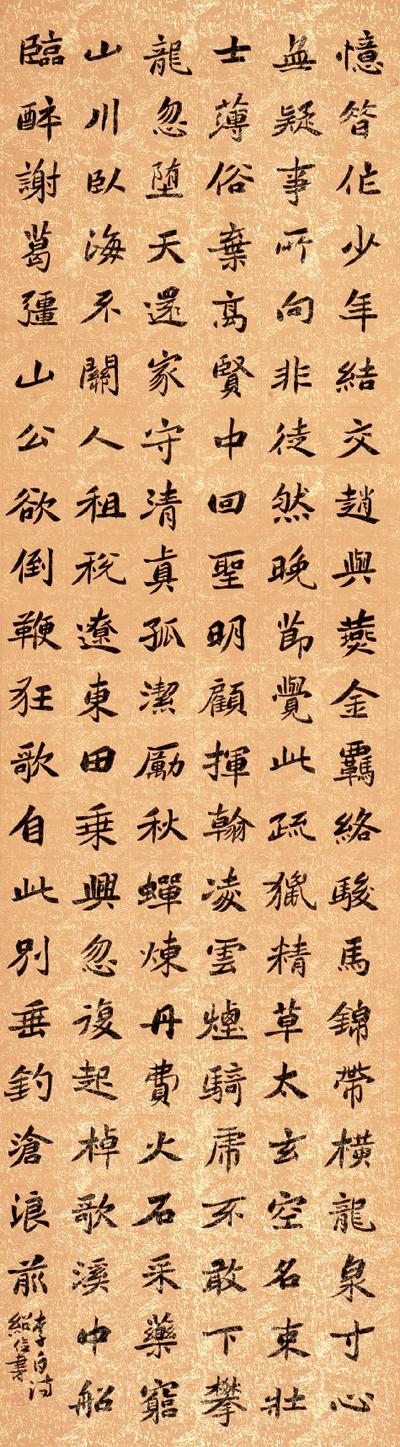 憶昔作少年結交趙與燕金羈絡駿馬錦帶橫龍泉寸心
無疑事所向非徒然晚節覺此疏獵精草太玄空名束壯
士薄俗棄高賢中回聖明顧揮翰凌雲煙騎虎不敢下攀
龍忽墮天還家守清真孤潔勵秋蟬煉丹費火石采藥窮
山川臥海不關人租稅遼東田乘興忽復起棹歌溪中船
臨醉謝葛彊山公欲倒鞭狂歌自此別垂釣滄浪前
李白詩
紹信書